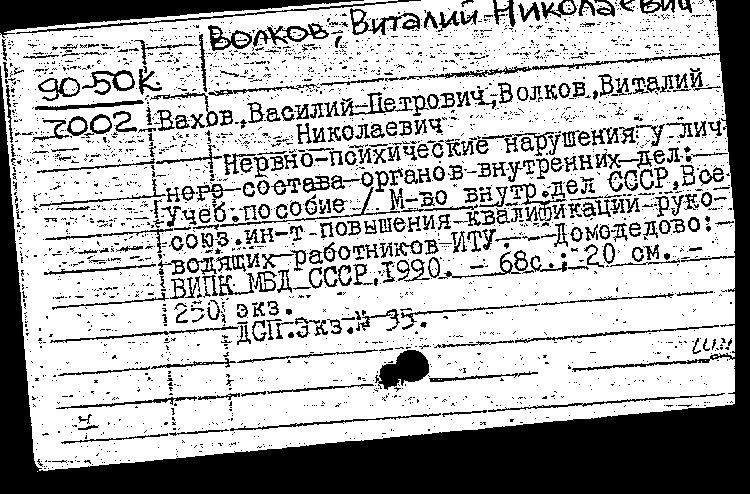 Волков, Виталий Николаевич
90-50К
2002
Вахов,Василий Петрович,Волков,Виталий
Николаевич
Нервно-психические нарушения у лич-
ного состава органов внутренних дел:
Учеб.пособие / М-во внутр.дел СССР,Все-
союз.ин-т повышения квалификации руко-
водящих работников ИТУ. - Домодедово:
ВИПК МВД СССР,1990. - 68с.; 20 см. -
250 экз.
ДСП.Экз.№ 35.